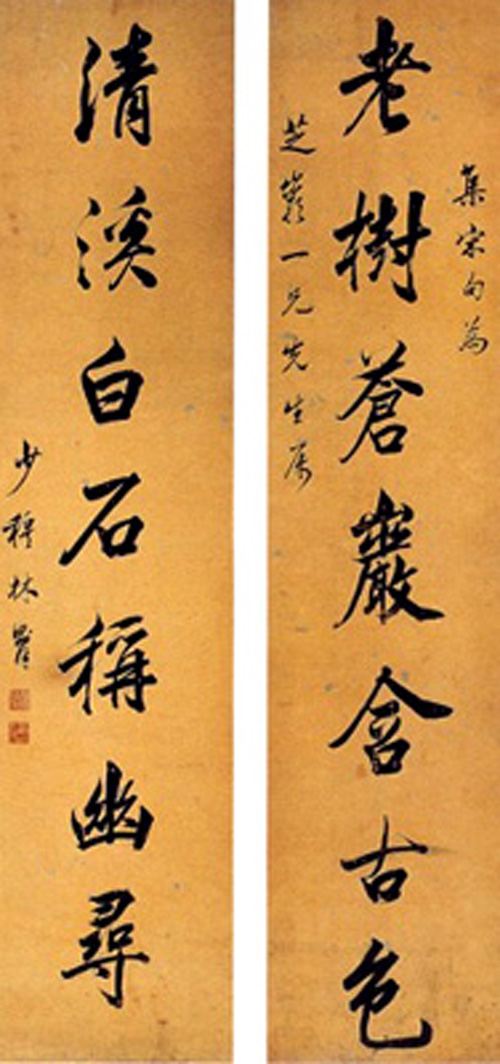 集宋句為
老樹蒼巖含古色
芝一兄先生属
清溪白石稱幽尋
少穆林